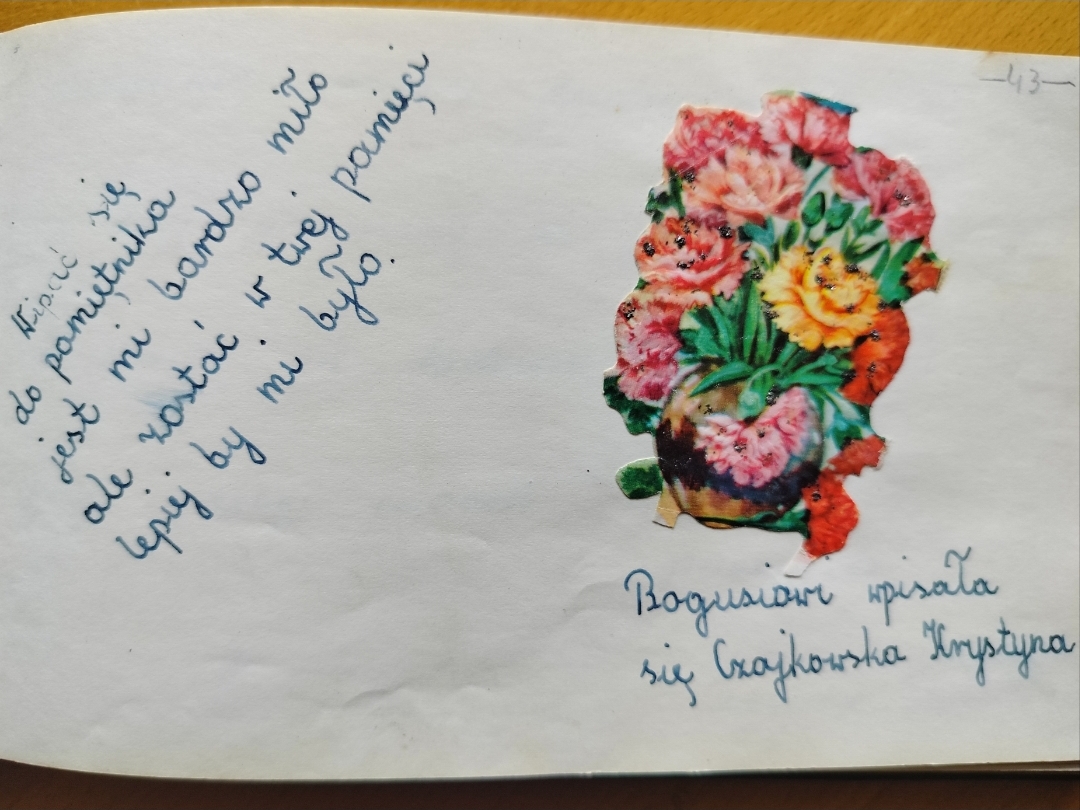 —43—
Wpisać się
do pamiętnika
jest mi bardzo miło
ale zostać w twej pamięci
lepiej by mi było.
Bogusiowi wpisała
się Czajkowska Krystyna